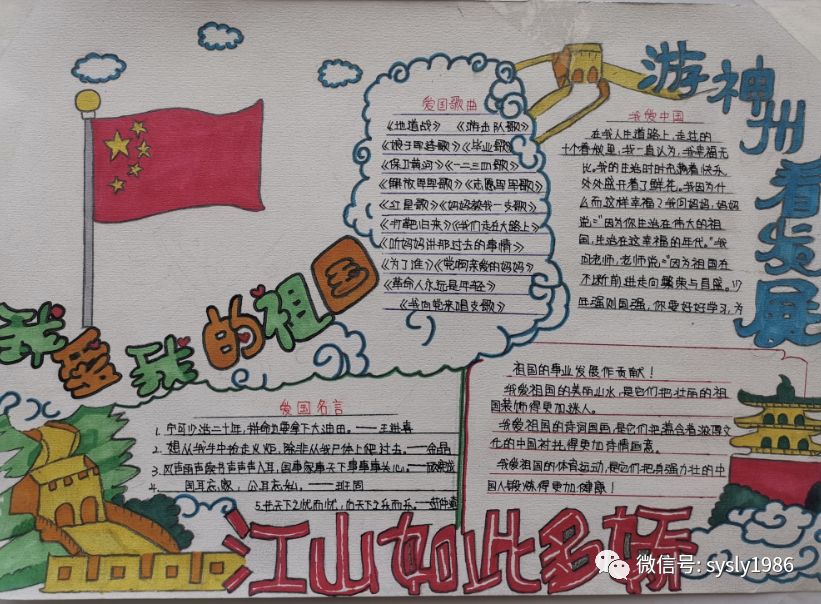 我爱我的祖国
爱国歌曲
《地道战》 《游击队歌》
《娘子军连歌》《毕业歌》
《保卫黄河》《一二三四歌》
《解放军军歌》《志愿军军歌》
《红星歌》《妈妈教我一支歌》
《打靶归来》《我们走在大路上》
《听妈妈讲那过去的事情》
《为了谁》《党啊亲爱的妈妈》
《革命人永远是年轻》
《唱支歌》
游神州
看发展
我爱中国
在我人生道路上,走过的
十个春秋里,我一直认为,我幸福无
比。我的生活时时充满着快乐,
处处盛开着了鲜花。我因为什
么而这样幸福?我问妈妈,妈妈
说:"因为你生活在伟大的祖
国,生活在这幸福的年代。"我
问老师,老师说:"因为祖国在
不断前进走向繁荣与昌盛。少
年强则国强,你要好好学习,为
祖国的事业发展作贡献!
我爱祖国的美丽山水,是它们把壮丽的祖
国装饰得更加迷人。
我爱祖国的诗词国画,是它们把蕴含着
化的中国衬托得更加诗情画意。
我爱祖国的体育运动,是它们把身强力壮的中
国人锻炼得更加健康!
爱国名言
1. 宁可少活二十年,拼命也要拿下大油田。——王进喜
2. 想从我手中抢走火炬,除非从我尸体上爬过去。——金晶
3. 风声雨声读书声声声入耳,国事家事天下事事事关心。——顾宪成
4. 国耳忘家,公耳忘私,——班固
5.先天下之忧而忧,后天下之乐而乐。——范仲淹
江山如此多娇
微信号: sysly1986